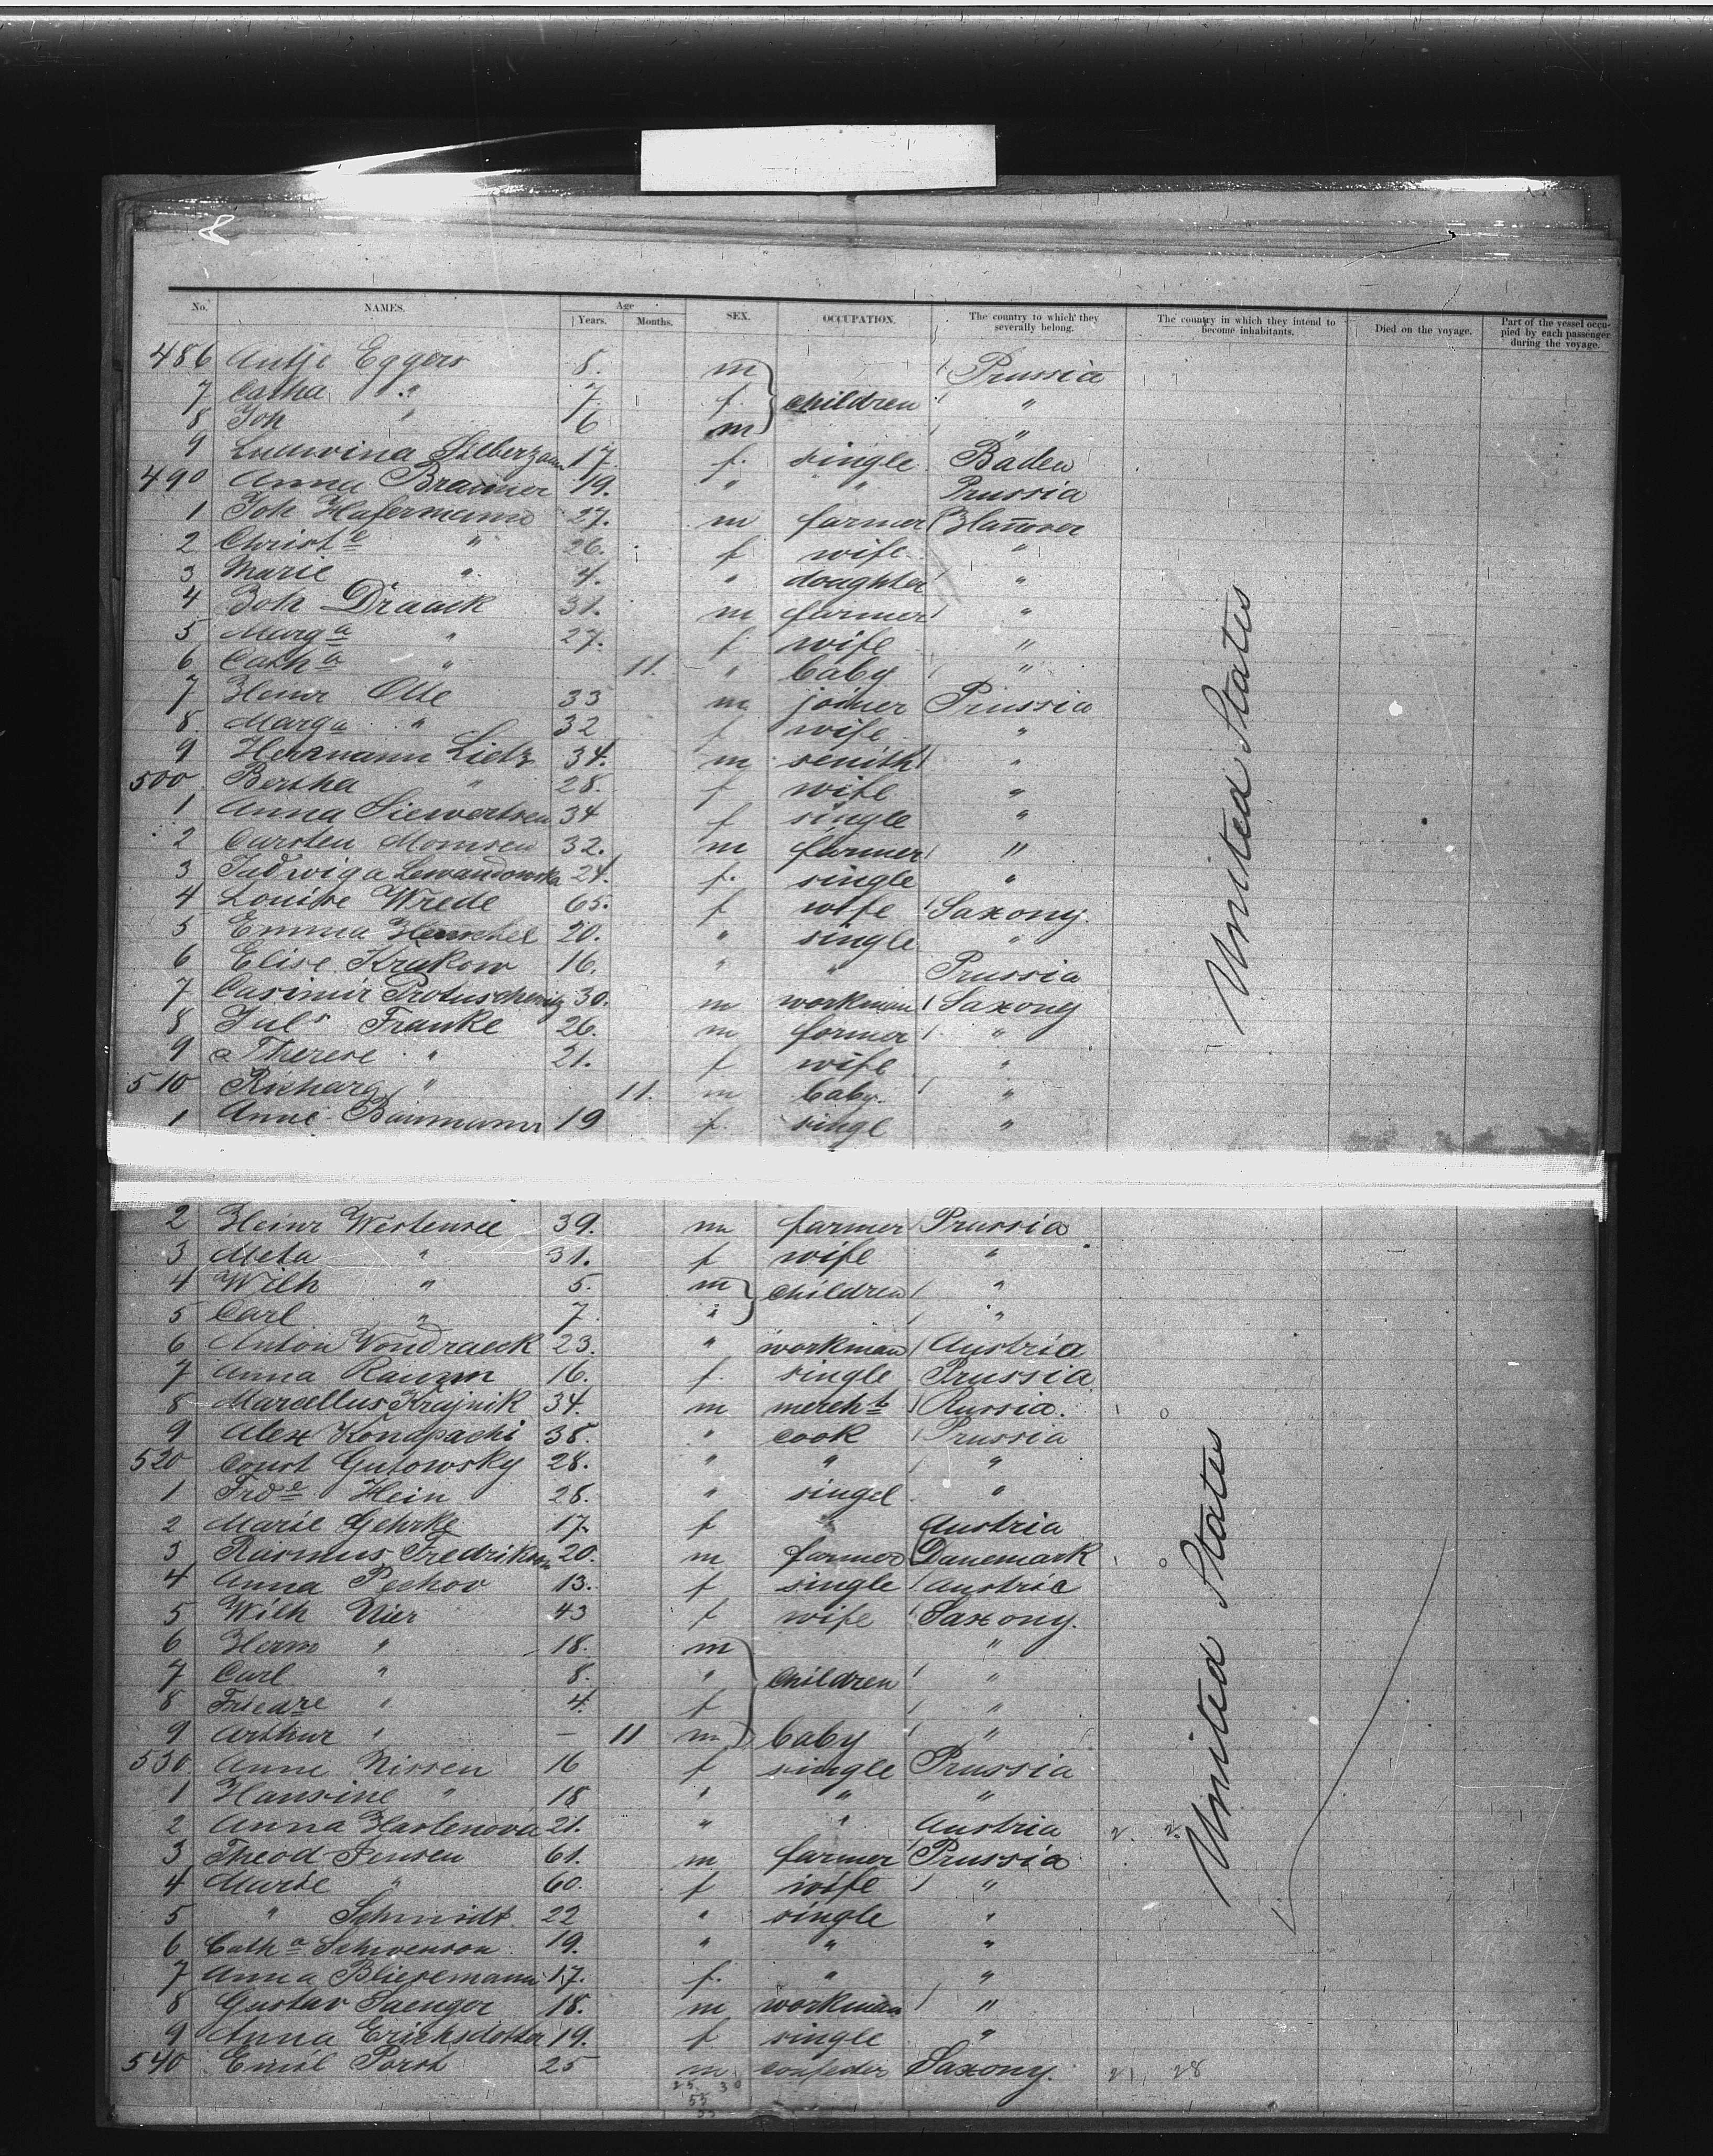 8
No. NAMES. Age Years. Months. SEX. OCCUPATION. The country to which they severally belong. The country in which they intend to become inhabitants. Died on the voyage. Part of the vessel occupied by each passenger during the voyage.
486 Antje Eggers 8. m Prussia
7 Catha " 7 f. children "
8 Joh " 6 m "
9 Ludwina Silberzann 17. f. single Baden
490 Anna Brammer 19. " " Prussia
1 Joh Hafermann 27. m farmer Hanover
2 Christe " 26. f wife "
3 Marie " 4. " doaghter "
4 Joh Draack 31. m farmer "
5 Marga " 27. f wife "
6 Catha " 11. " baby "
7 Heinr Otte 33 m joiner Prussia
8 Marga " 32 f wife "
9 Herrmann Lietz 34. m smith "
500 Bertha " 28. f wife "
1 Anna Siewertsen 34 f single "
2 Carsten Momsen 32. m farmer "
3 Judwiga Lewandowska 24. f. single "
4 Louise Wrede 65. f wife Saxony.
5 Emma Henschel 20. " single "
6 Elise Krukow 16. " " Prussia
7 Casimir 30. m workman Saxony
8 Juls Franke 26. m farmer "
9 Therese " 21. f wife "
510 Richard " 11. m baby. "
1 Anne Baumann 19 f. singl "
United States
2 Heinr Westensee 39. m farmer Prussia
3 Meta " 31. f wife "
4 Wilh " 5. m children "
5 Carl " 7 " "
6 Anton Vondraeck 23. " workman Austria
7 Anna 16. f. single Prussia
8 Marcellus Krajnik 34. m mercht Russia.
9 Alex Konapachi 38. " cook Prussia
520 Const Gutowsky 28. " " "
1 Frde Hein 28. " singel "
2 Marie Gehrke 17. f " Austria
3 Rasmus Fredriksen 20. m farmer Danemark
4 Anna Pechov 13. f single Austria
5 Wilh Nier 43 f wife Saxony.
6 Herm " 18. m "
7 Carl " 8. " children "
8 Friedre " 4. f "
9 Arthur " — 11 m baby "
530. Anne Nissen 16 f single Prussia
1 Hansine " 18 " " "
2 Anna Haslenova 21. " " Austria 2. 2.
3 Theod Jensen 61. m farmer Prussia
4 Marie " 60. f wife "
5 " Schmidt 22 " single "
6 Catha Schwenson 19. " " "
7 Anna Bliesemann 17. f. " "
8 Gustav Saenger 18. m workman "
9 Anna Erichsdotter 19. f single "
540 Emil Porst 25 m Saxony. 21 28
United States
25 30
55